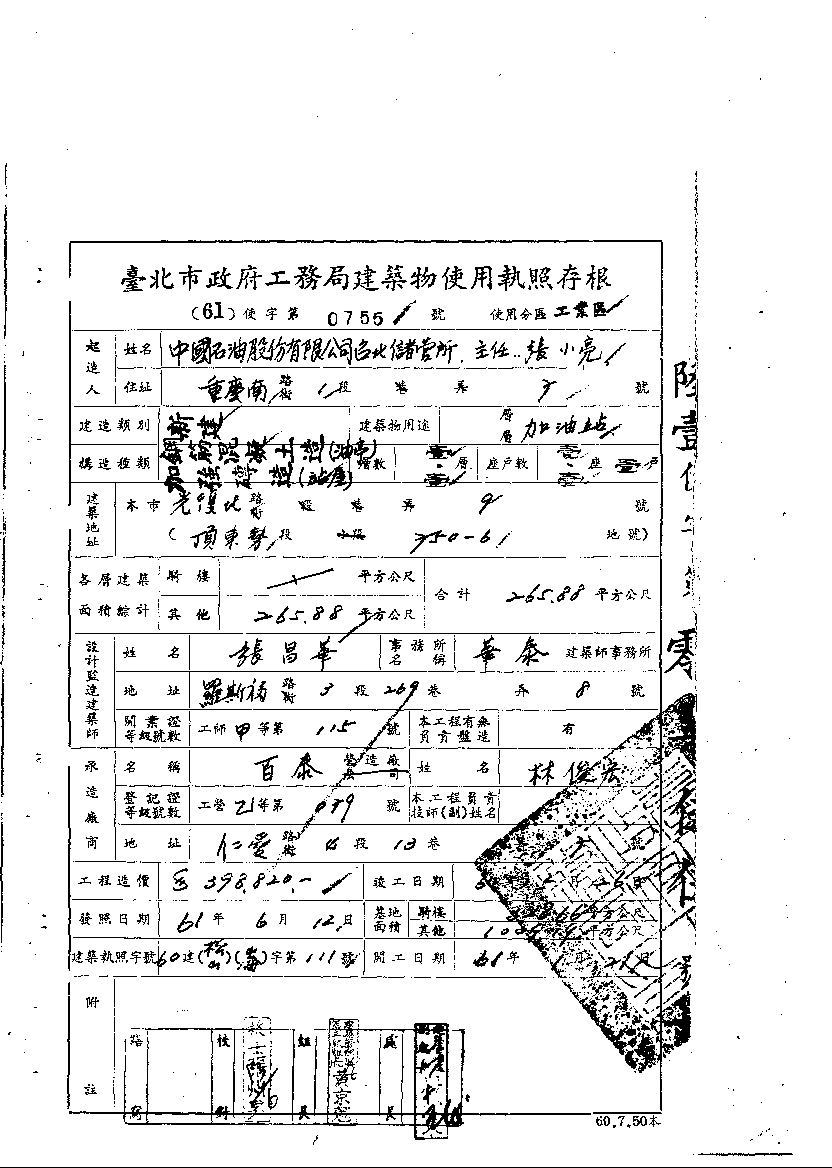 臺北市政府工務局建築物使用執照存根
(61)使字第 0755 號 使用分區 工業區
起造人 姓名 中國石油股份有限公司台北儲營所 主任 張小亮
住址 重慶南 路街 1 段 巷 弄 號
建造類別 新建 建築物用途 層層 加油站
構造種類 加強磚造(站屋) 鋼筋混凝土造(油亭) 層數 壹 層 座戶數 壹 座 壹 戶
建築地址 本市 光復北 路街 段 巷 弄 9 號
(頂東勢 段 小段 750-61 地號)
各層建築面積綜計 騎樓 平方公尺 合計 265.88 平方公尺
其他 265.88 平方公尺
設計監造建築師 姓名 張昌華 事務所名稱 華泰 建築師事務所
地址 羅斯福 路街 3 段 269 巷 弄 8 號
開業證等級號數 工師甲等第 115 號 本工程有無負責監造 有
承造廠商 名稱 百泰 營造廠公司 姓名 林俊宏
登記證等級號數 工營乙等第 079 號 本工程負責技師(副)姓名
地址 仁愛 路街 4 段 13 巷 號
工程造價 398,820.- 竣工日期
發照日期 61年 6月 12日 基地面積 騎樓 平方公尺
其他 平方公尺
建築執照字號 60建(松山)( )字第 111 號 開工日期 61年 月 日
附註
路 校對 組長 處長
黃
60.7.50本
陸壹使字第零